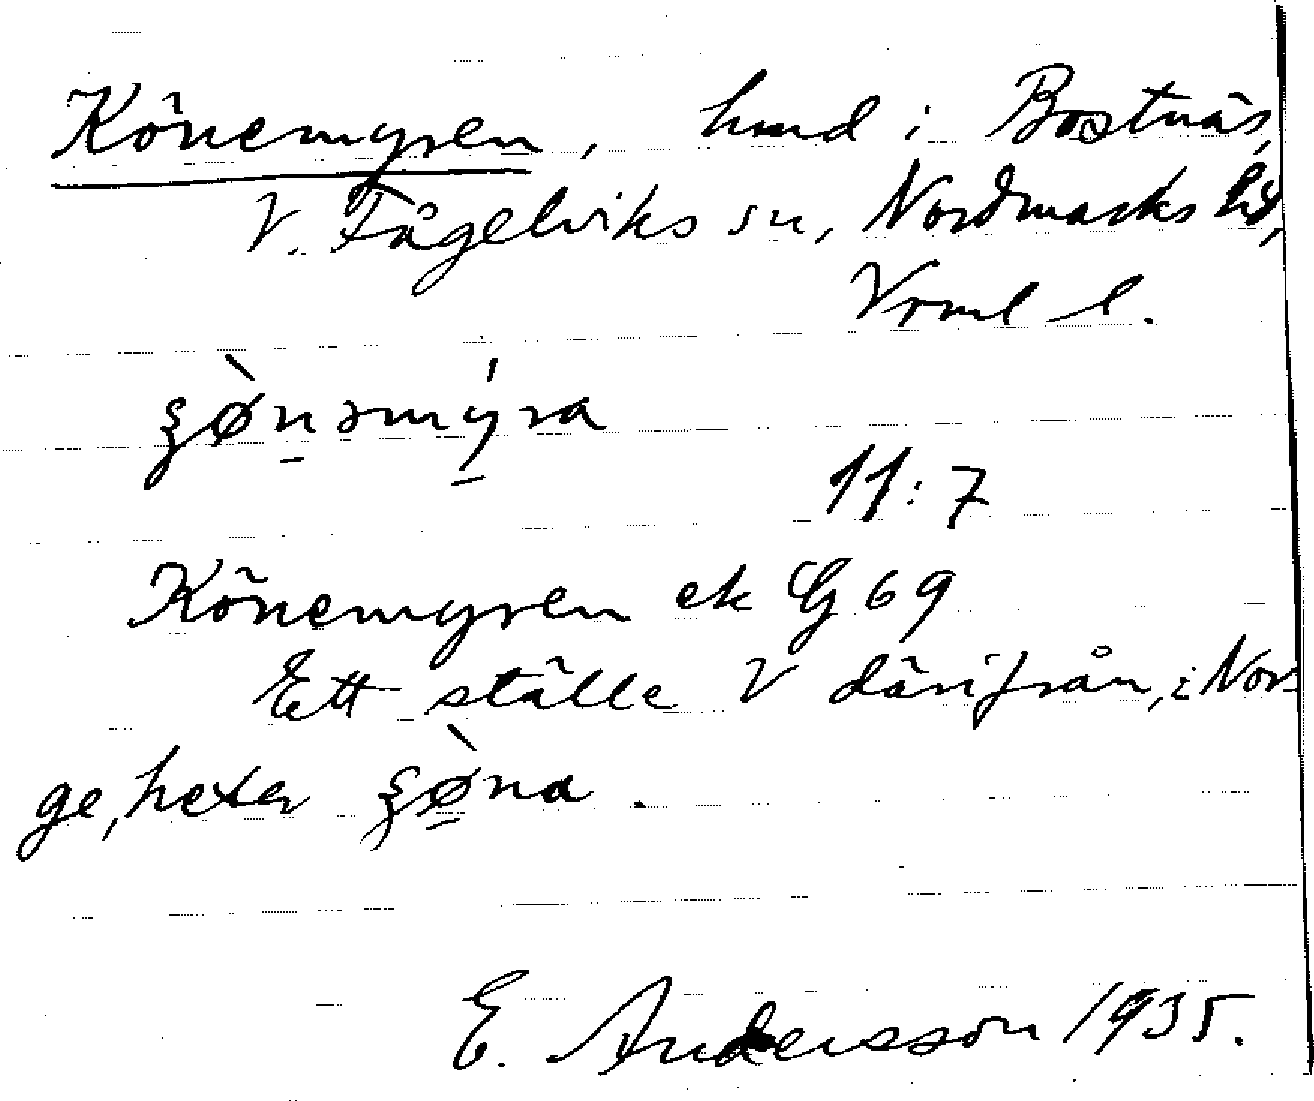 Könemyren, hmd i Bostnäs,
V. Fågelviks sn, Nordmarks hd,
Vrml l.
ȿø̀nəmýra
11:7
Könemyren ek G 69
Ett ställe V därifrån, i Nor
ge, heter ȿø̀na.
E. Andersson 1935.